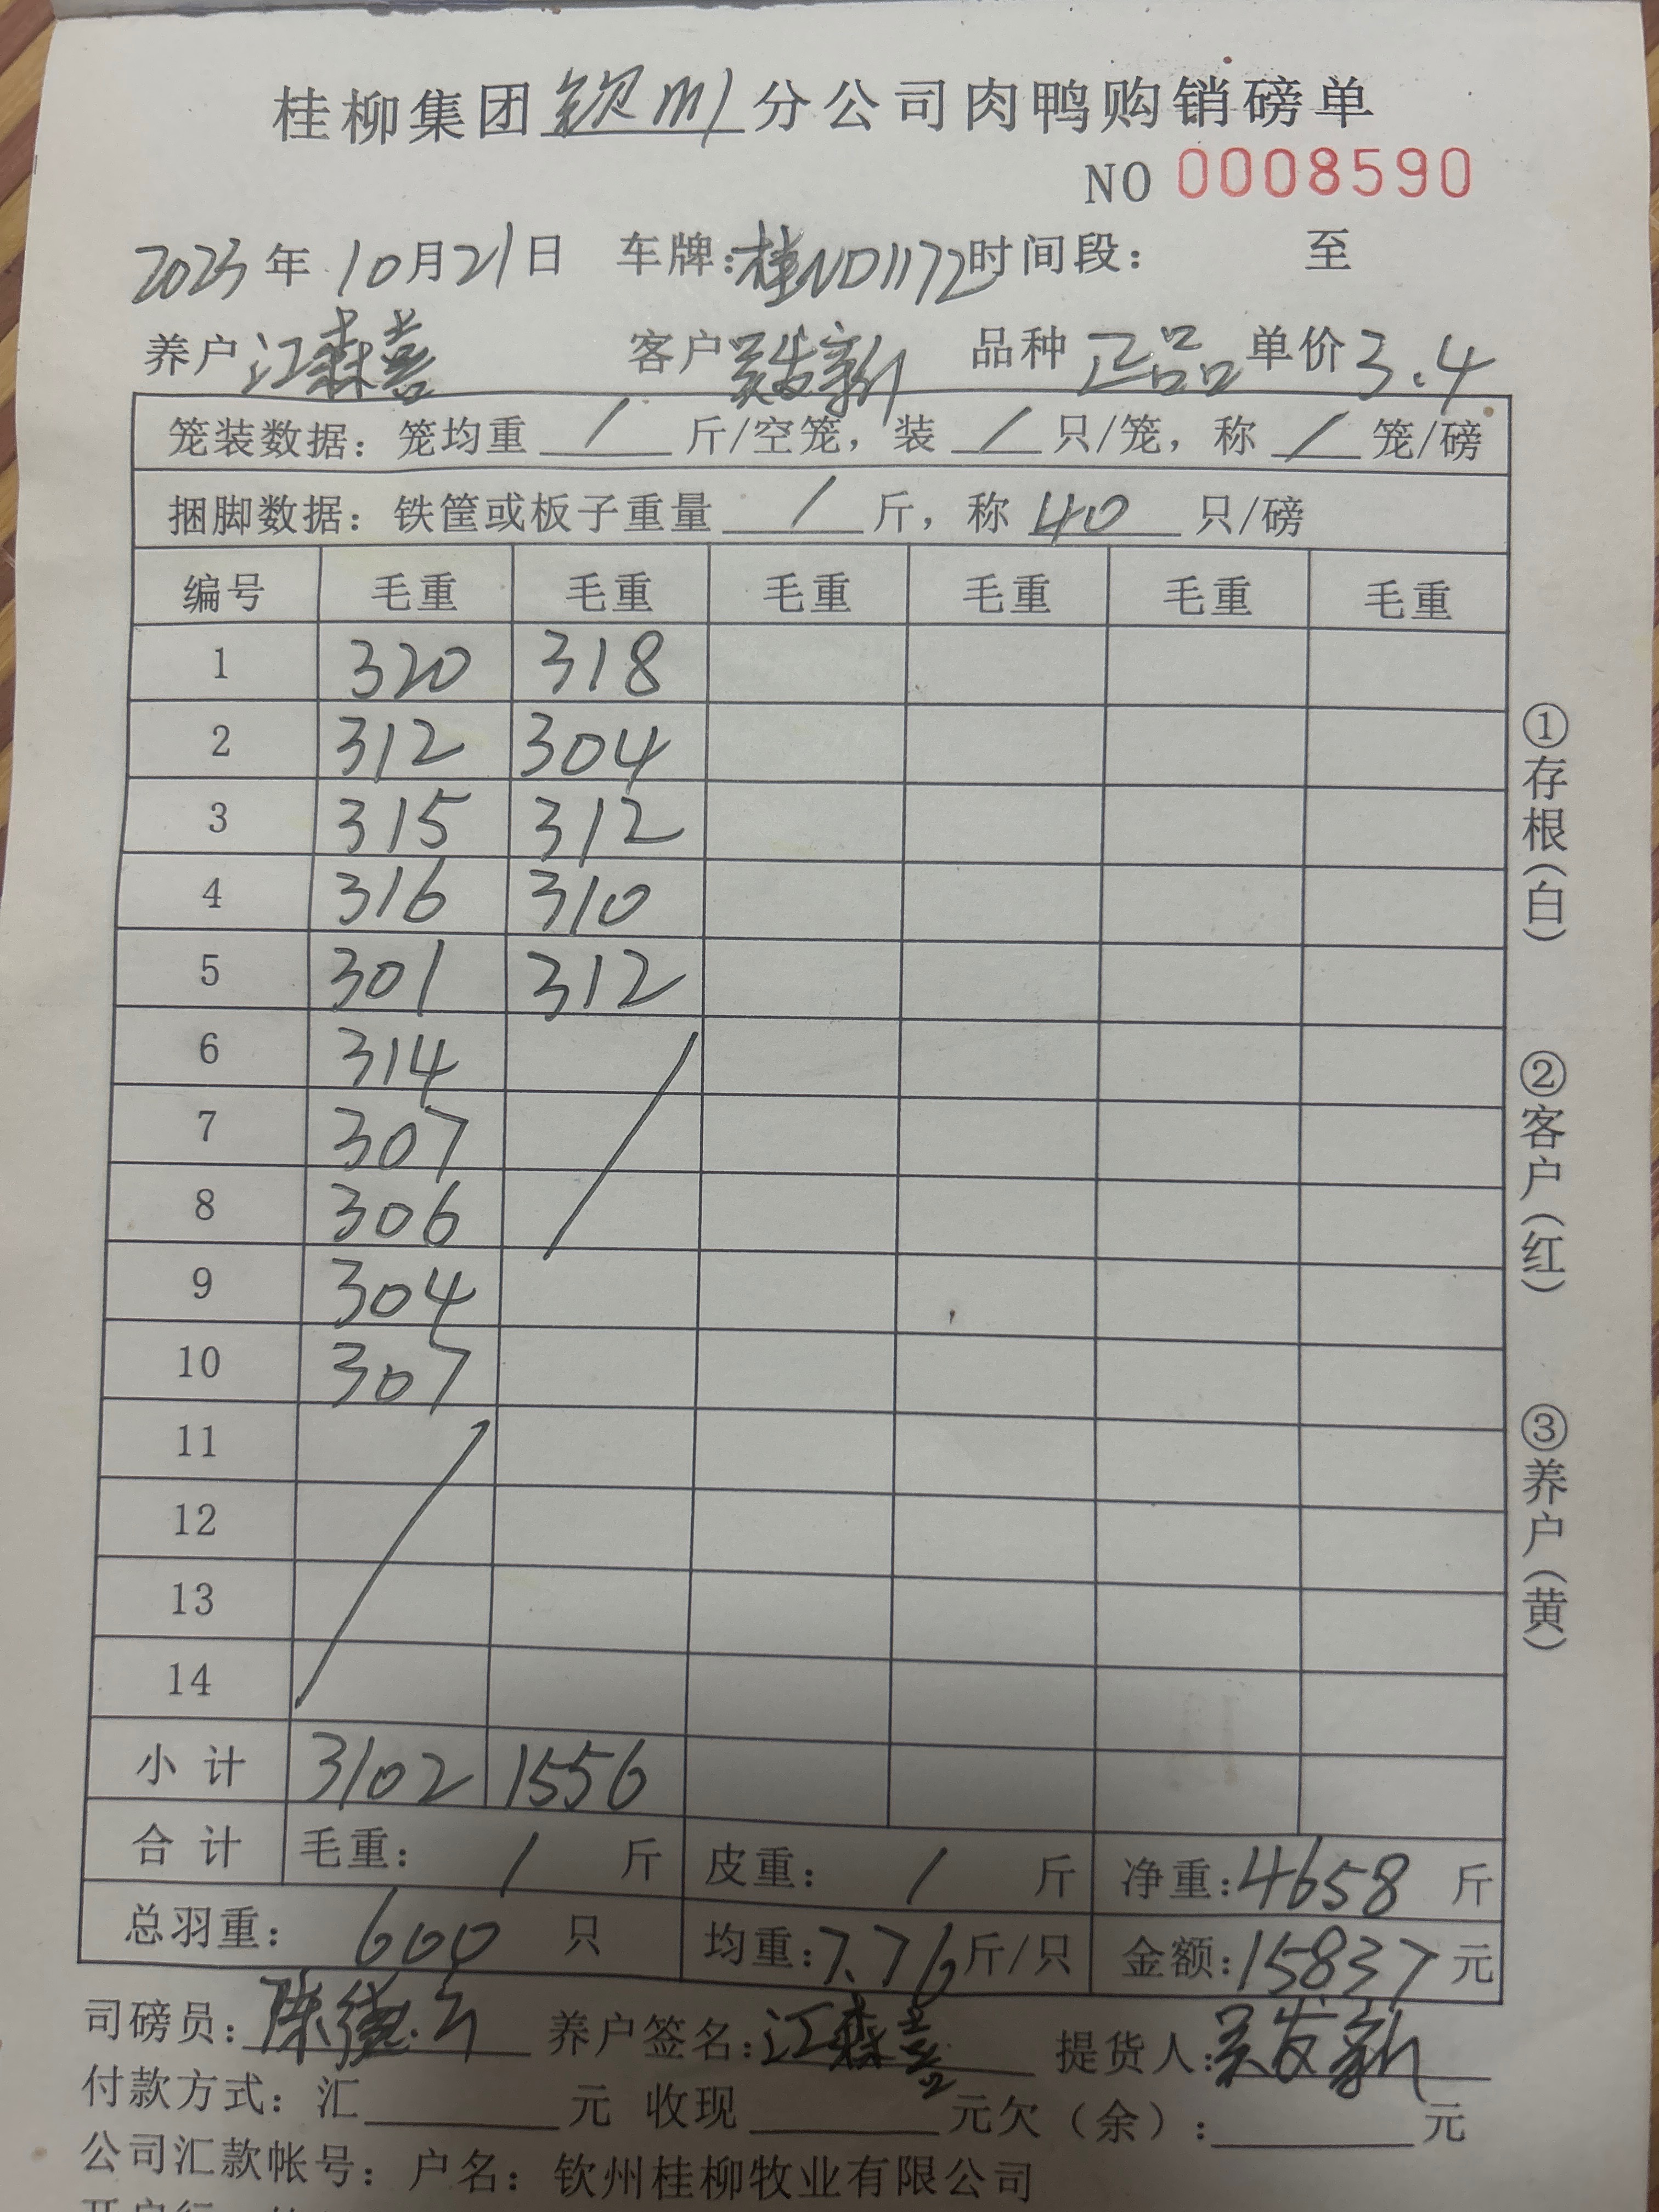 桂柳集团钦州分公司肉鸭购销磅单
NO 0008590
2023年10月21日 车牌:桂ND1172时间段: 至
养户江森喜 客户吴发新 品种正品单价3.4
笼装数据: 笼均重 / 斤/空笼, 装 / 只/笼, 称 / 笼/磅
捆脚数据: 铁筐或板子重量 / 斤, 称 40 只/磅
编号 毛重 毛重 毛重 毛重 毛重 毛重
1 320 318
2 312 304
3 315 312
4 316 310
5 301 312
6 314 /
7 307
8 306
9 304
10 307
11 /
12
13
14
小计 3102 1556
合计 毛重: / 斤 皮重: / 斤 净重:4658 斤
总羽重: 600 只 均重:7.76斤/只 金额:15837元
司磅员: 养户签名:江森喜 提货人:吴发新
付款方式: 汇 元 收现 元欠(余): 元
公司汇款帐号: 户名: 钦州桂柳牧业有限公司
①存根(白)
②客户(红)
③养户(黄)